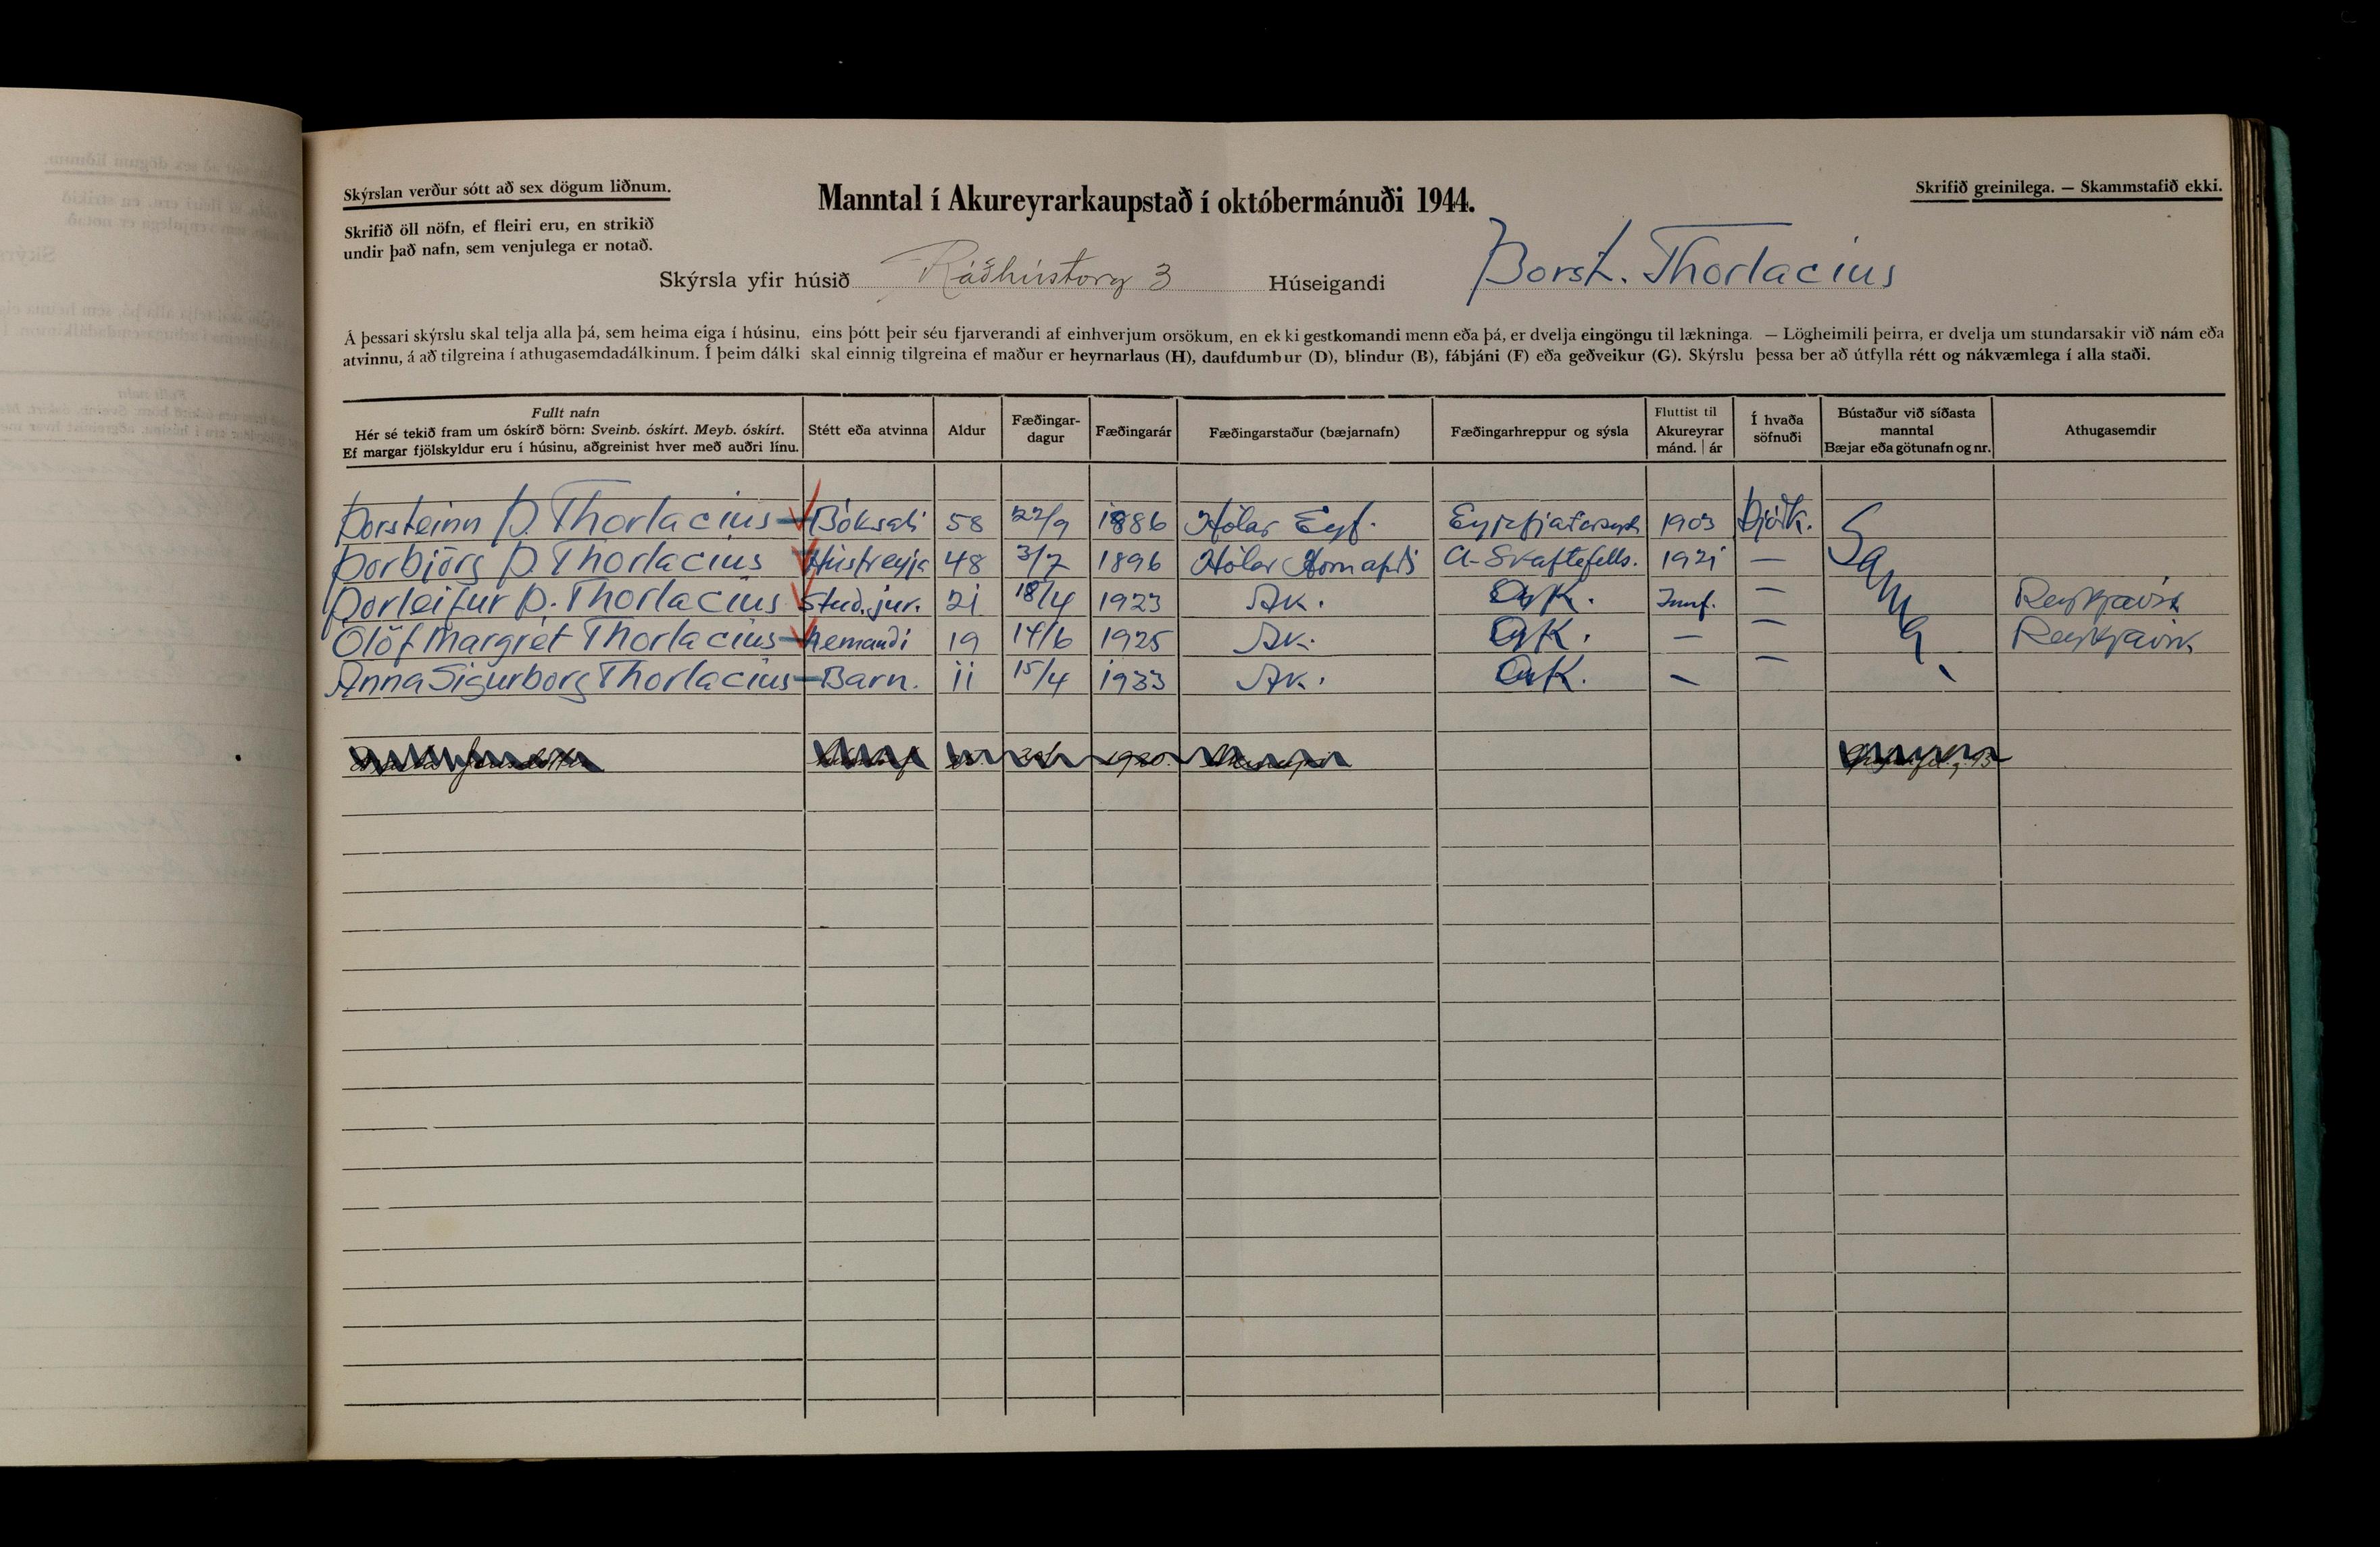 Skýrslan verður sótt að sex dögum liðnum.
Manntal í Akureyrarkaupstað í októbermánuði 1944.
Skrifið greinilega. — Skammstafið ekki.
Skrifið öll nöfn, ef fleiri eru, en strikið
undir það nafn, sem venjulega er notað.
Skýrsla yfir húsið Ráðhústorg 3 Húseigandi Þorst. Thorlacius
Á þessari skýrslu skal telja alla þá, sem heima eiga í húsinu, eins þótt þeir séu fjarverandi af einhverjum orsökum, en ekki gestkomandi menn eða þá, er dvelja eingöngu til lækninga. — Lögheimili þeirra, er dvelja um stundarsakir við nám eða
atvinnu, á að tilgreina í athugasemdadálkinum. Í þeim dálki skal einnig tilgreina ef maður er heyrnarlaus (H), daufdumbur (D), blindur (B), fábjáni (F) eða geðveikur (G). Skýrslu þessa ber að útfylla rétt og nákvæmlega í alla staði.
Fullt nafn
Hér sé tekið fram um óskírð börn: Sveinb. óskírt. Meyb. óskírt.
Ef margar fjölskyldur eru í húsinu, aðgreinist hver með auðri línu.
Stétt eða atvinna
Aldur
Fæðingar-
dagur
Fæðingarár
Fæðingarstaður (bæjarnafn)
Fæðingarhreppur og sýsla
Fluttist til
Akureyrar
mánd. | ár
Í hvaða
söfnuði
Bústaður við síðasta
manntal
Bæjar eða götunafn og nr.
Athugasemdir
Þorsteinn Þ. Thorlacius Bóksali 58 22/9 1886 Hólar Eyf. 1903 Þjóðk. Sama
Þorbjörg Þ. Thorlacius Húsfreyja 48 3/7 1896 Hólar Hornafirði A-Skaftafells. 1921 —
Þorleifur Þ. Thorlacius Stud. jur. 21 18/4 1923 Ak. Ak. Innf. — Reykjavík
Ólöf Margrét Thorlacius nemandi 19 14/6 1925 Ak. Ak. — — Reykjavík
Anna Sigurborg Thorlacius Barn. 11 15/4 1933 Ak. Ak. — —
1920